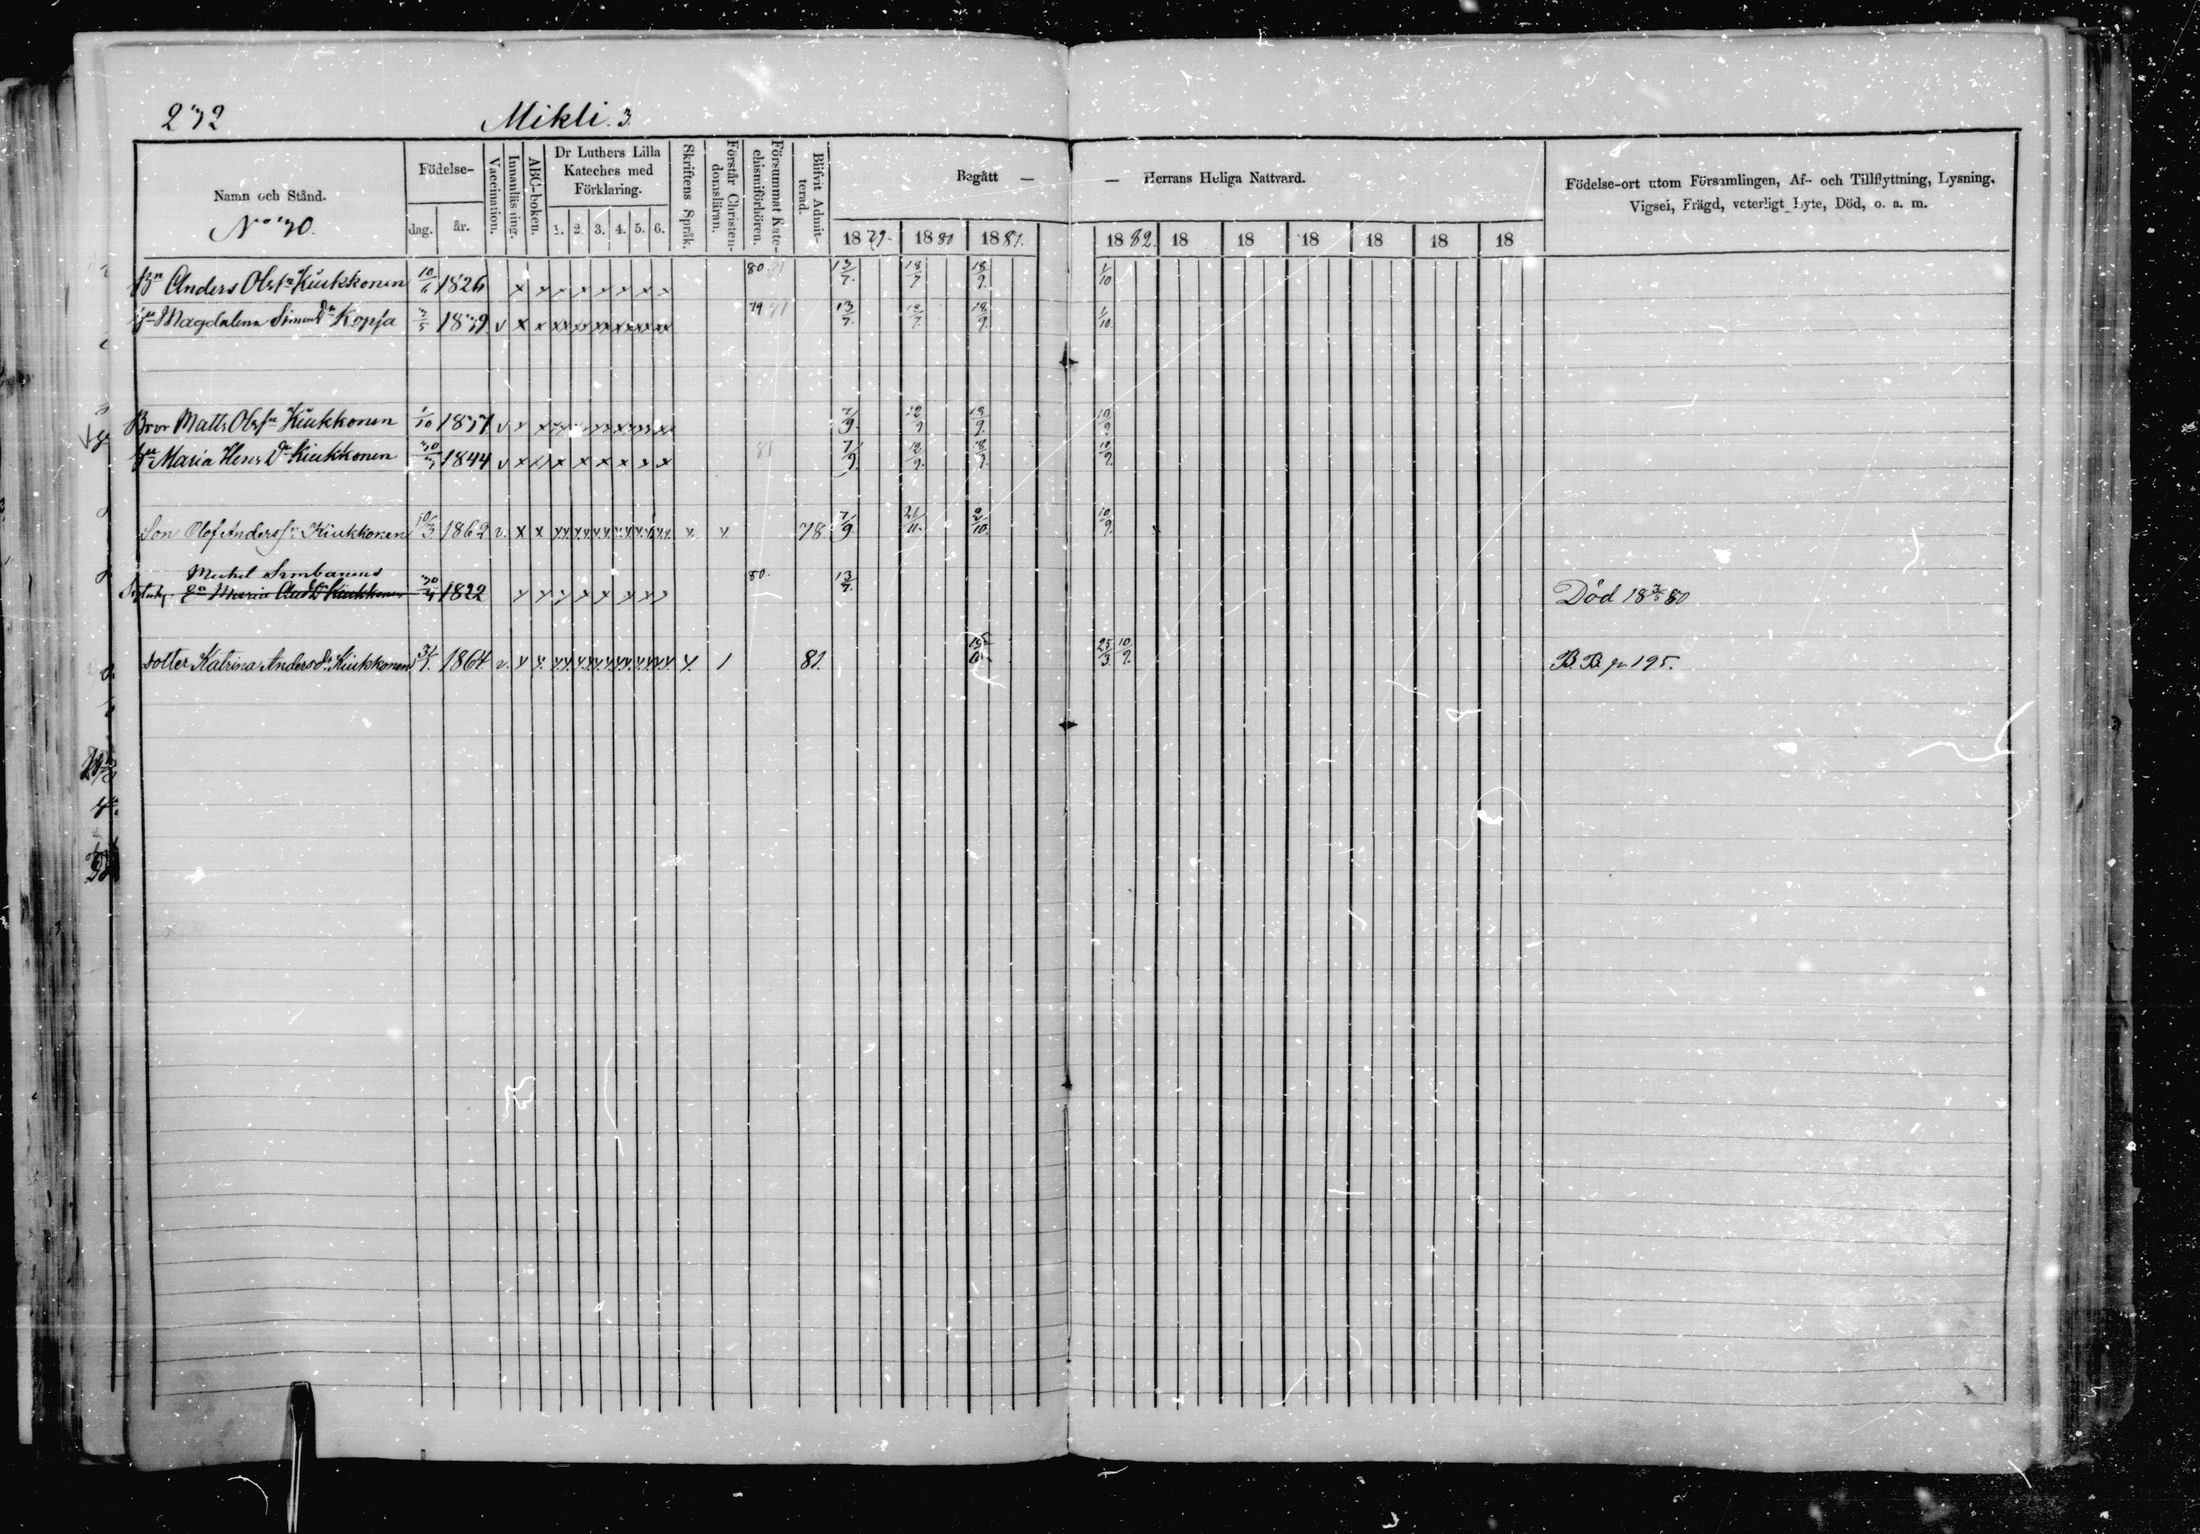 232 Mikli. 3.
Namn och Stånd.
No 30.
Födelse-
dag. år.
Vaccination.
Innanläsning.
ABC-boken.
Dr Luthers Lilla
Kateches med
Förklaring.
1. 2. 3. 4. 5. 6.
Skriftens Språk.
Förstår Christen-
domsläran.
Försummat Kate-
chismiförhören.
Blifvit Admit-
terad.
Begått — — Herrans Heliga Nattvard.
1879. 1880 1881. 1882. 18 18 18 18 18 18
Födelse-ort utom Församlingen, Af- och Tillflyttning, Lysning,
Vigsel, Frägd, veterligt Lyte, Död, o. a. m.
Bn Anders Olsfn Kiukkonen 10/6 1826 x x x x x x x x 80 81 13/7. 18/7 18/9. 1/10
Magdalena Simons Dr Kopsa 1839 v x x xx xx xx xx xx xx 79 81 13/7. 18/7. 18/9. 1/10.
Bror Matts Olsfn Kiukkonen 1/10 1837 v x x 7/9. 12/9 18/9. 10/9.
hu Maria Henr Dr Kiukkonen 1844 v x x x x x x x 81 7/9. 12/9. 18/9. 10/9.
Son Olof Andersfn Kiukkonen 10/3 1862 v. x x 78. 7/9. 21/11. 2/10. 10/9.
Michel
Maria And Dr Kiukkonen 1822 x x x x x x x x 80. 13/7. Död 18 3/5 80
dotter Katrina Anders dr Kiukkonen 31/7. 1864 v. 1 81. 25/3 10/9. B. B. pa 195.